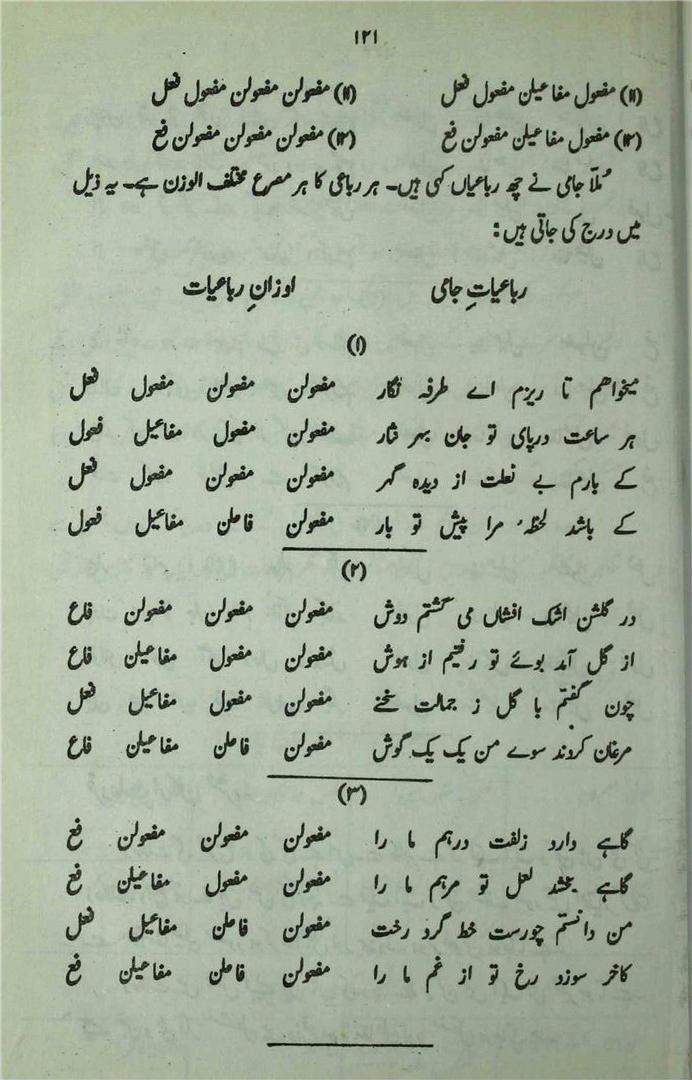 ۱۲۱
(۱۱) مفعول مفاعیلن مفعول فعل (۱۱) مفعولن مفعولن مفعول فعل
(۱۲) مفعول مفاعیلن مفعولن فع (۱۲) مفعولن مفعولن مفعولن فع
مُلّا جامی نے چھ رباعیاں کہی ہیں۔ ہر رباعی کا ہر مصرع مختلف الوزن ہے۔ یہ ذیل
میں درج کی جاتی ہیں:
رباعیاتِ جامی اوزانِ رباعیات
(۱)
میخواهم تا ریزم اے طرفہ نگار مفعولن مفعولن مفعول فعل
ہر ساعت درپای تو جان بہر نثار مفعولن مفعول مفاعیل فعول
کے بارم بے نعلت از دیدہ گہر مفعولن مفعولن مفعول فعل
کے باشد لحظہٴ مرا پیش تو بار مفعولن فاعلن مفاعیل فعول
(۲)
در گلشن اشک افشاں می گشتم دوش مفعولن مفعولن مفعولن فاع
از گل آمد بوئے تو رفتیم از ہوش مفعولن مفعول مفاعیلن فاع
چون گفتم با گل ز جمالت سخنے مفعولن مفعول مفاعیل فعل
مرغان کردند سوے من یک یک گوش مفعولن فاعلن مفاعیلن فاع
(۳)
گاہے دارد زلفت درہم ما را مفعولن مفعولن مفعولن فع
گاہے بخشد لعل تو مرہم ما را مفعولن مفعول مفاعیلن فع
من دانستم چورست خط گرد رخت مفعولن فاعلن مفاعیل فعل
کاخر سوزد رخ تو از غم ما را مفعولن فاعلن مفاعیلن فع